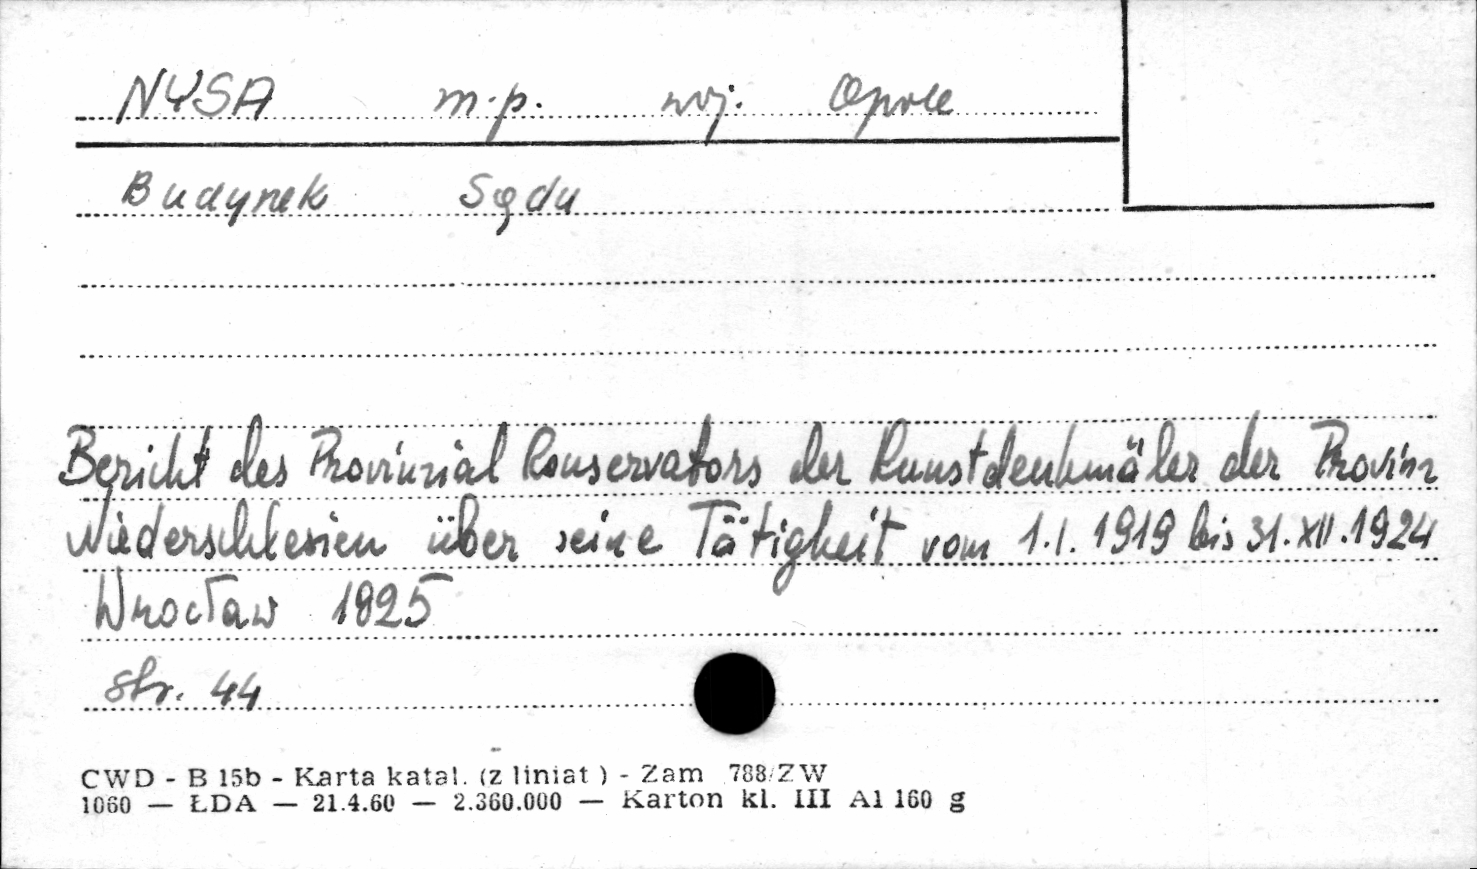 NYSA m.p. woj. Opole
Budynek Sądu
Bericht des Provinzial Konservators der Kunstdenkmäler der Provinz
Niederschlesien über seine Tätigkeit vom 1.I.1919 bis 31.XII.1924
Wrocław 1925
Str. 44
CWD - B 15b - Karta katal. (z liniat ) - Zam 788/ZW
1060 — ŁDA — 21.4.60 — 2.360.000 — Karton kl. III A1 160 g